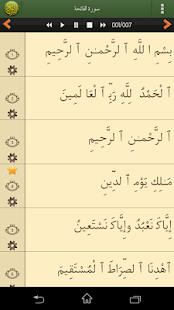 سورة الفاتحة
001/007
بِسْمِ ٱللَّهِ ٱلرَّحْمَـٰنِ ٱلرَّحِيمِ
ٱلْحَمْدُ لِلَّهِ رَبِّ ٱلْعَالَمِينَ
ٱلرَّحْمَـٰنِ ٱلرَّحِيمِ
مَـٰلِكِ يَوْمِ ٱلدِّينِ
إِيَّاكَ نَعْبُدُ وَإِيَّاكَ نَسْتَعِينُ
ٱهْدِنَا ٱلصِّرَاطَ ٱلْمُسْتَقِيمَ